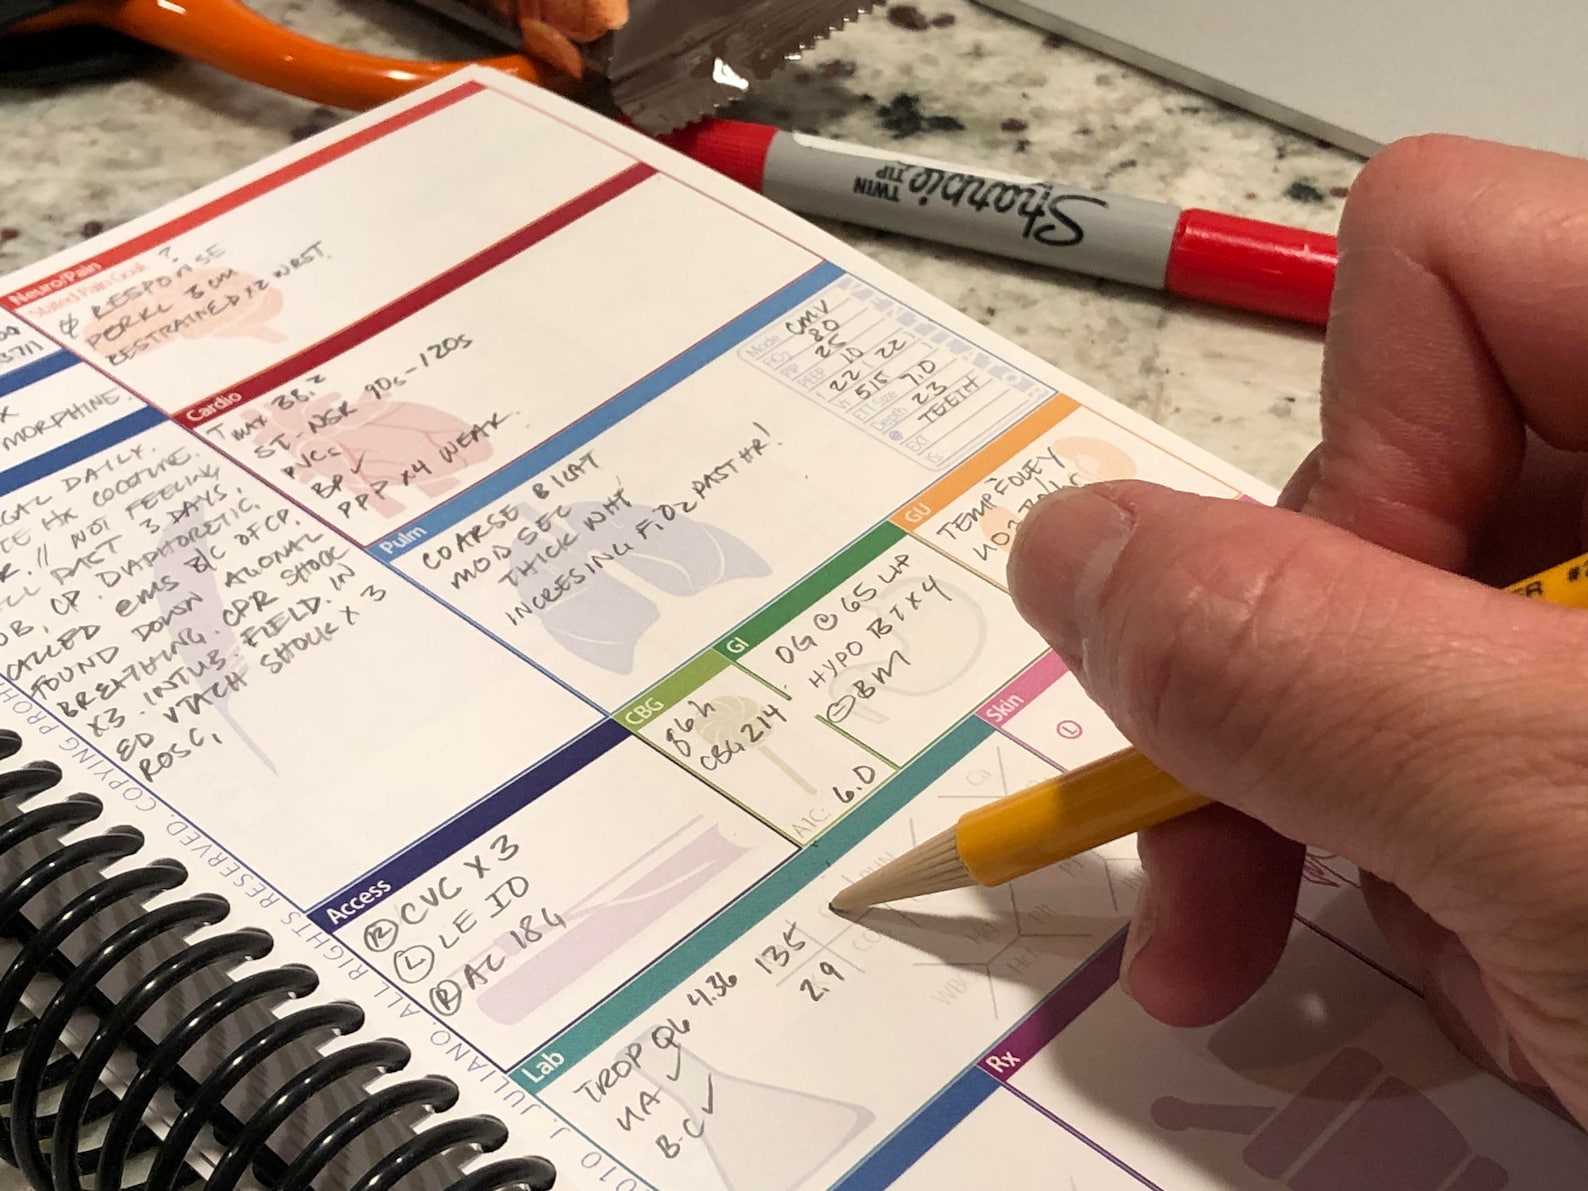 Sharpie
TWIN
TIP
Neuro/Pain
Stated Pain Goal ?
∅ RESPONSE
PERRL 3 cm
RESTRAINED x2 WRST.
37/1
MORPHINE.
Cardio
TMAX 38.2
ST-NSR 90s-120s
PVCs
BP ✓
PPP x4 WEAK
DAILY.
HX COCAINE.
// NOT FEELING
PAST 3 DAYS,
CP. DIAPHORETIC.
CALLED EMS B/C OF CP.
FOUND DOWN AGONAL
BREATHING. CPR SHOCK
X3. INTUB. FIELD. IN
ED VTACH SHOCK X 3
ROSC,
Pulm
COARSE BILAT
MOD SEC
THICK WHT
INCRESING FiO2 PAST HR!
Mode CMV
FiO2 80
PIP 25
PEEP 10
22 / 22
VT 515
ETT Size 7.0
Depth 23
@ TEETH
EXT
GU
TEMP FOLEY
GI
OG @ 65 LIP
HYPO BT x 4
⊖BM
CBG
Q6h
CBG 214
A1C: 6.0
Skin
Ⓛ
Access
Ⓡ CVC X 3
Ⓛ LE IO
Ⓡ AC 18G
Lab
TROP Q6 4.36
135
2.9
UA ✓
B.C ✓
Ca
Rx
2010 J. JULIANO. ALL RIGHTS RESERVED. COPYING PROH